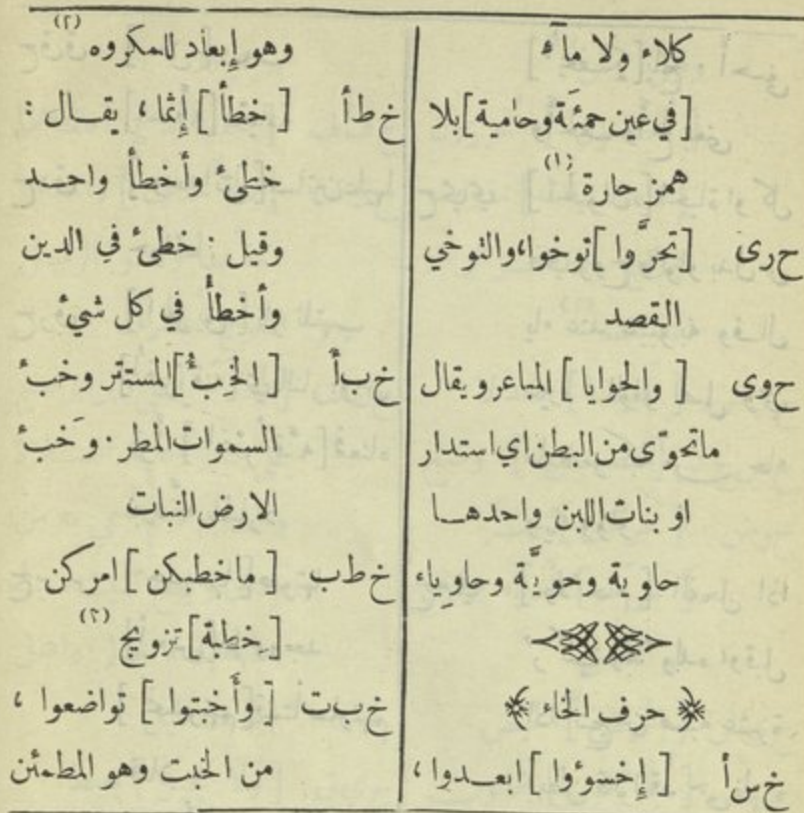 كلاء ولا مآء
[في عين حمئة وحامية] بلا
همز حارة (١)
ح‌رى [تحرَّوا] توخوا، والتوخي
القصد
ح‌وى [والحوايا] المباعر ويقال
ماتحوّى من البطن اي استدار
او بنات اللبن واحدهـا
حاوية وحويَّة وحاوِياء
﴿ حرف الخاء ﴾
خ‌سأ [إِخسوُوا] ابعـدوا،
وهو إِبعاد للمكروه (٢)
خ‌طأ [خطأً] إِثما، يقـال :
خطِئ وأخطأ واحـد
وقيل . خطئ في الدين
وأخطأ في كل شيء
خ‌بأ [الخِبءُ] المستتر وخبء
السموات المطر . وَخبء
الارض النبات
خ‌طب [ماخطبكن] امركن
[خِطبة] تزويج (٣)
خ‌بت [وأَخبتوا] تواضعوا ،
من الخبت وهو المطمئن